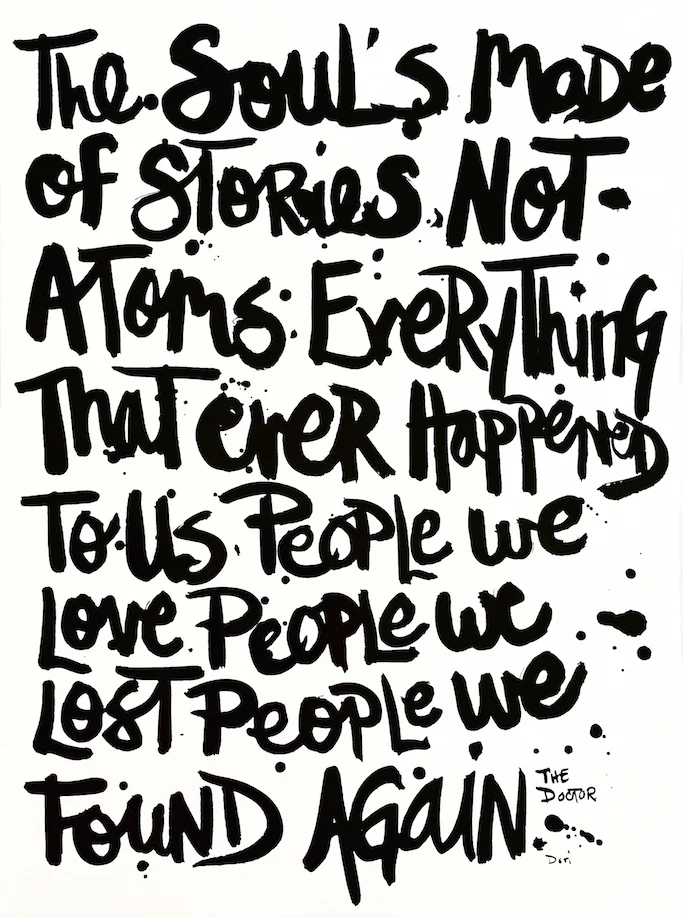 The Soul's Made
of Stories Not
Atoms Everything
That ever Happened
To Us People we
Love People we
Lost People we
Found Again
THE
DOCTOR
Dori